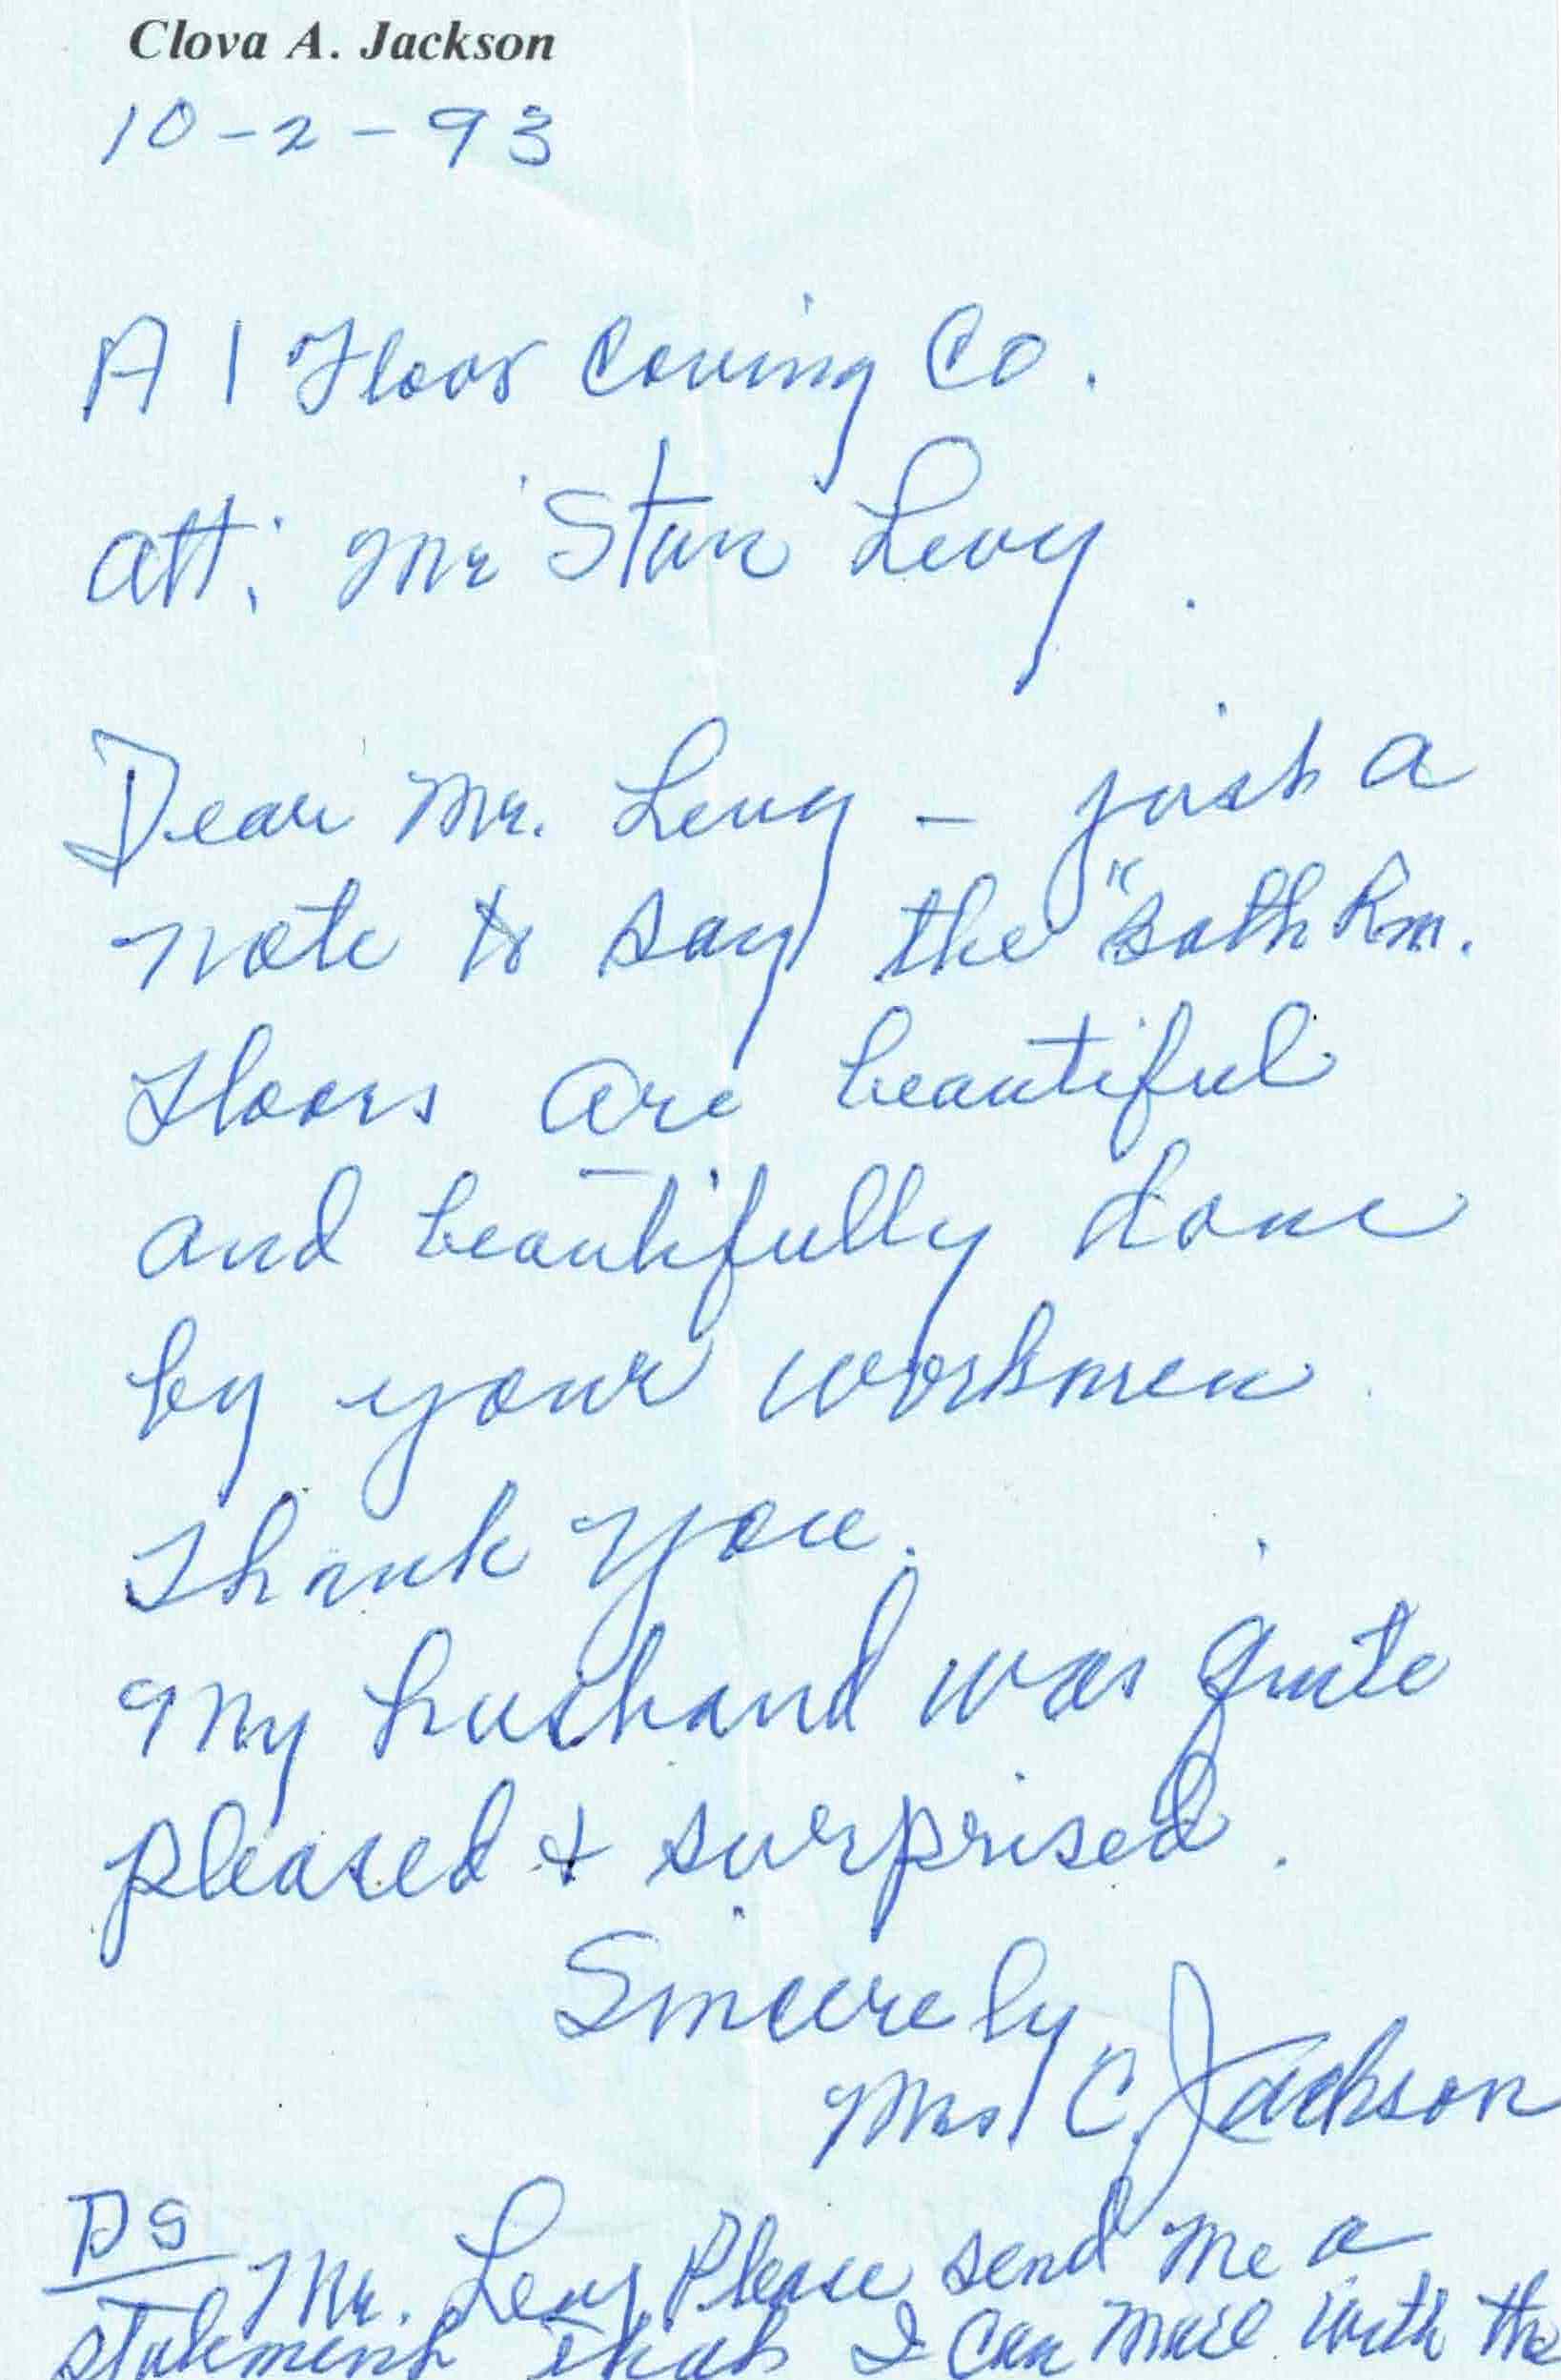 Clova A. Jackson
10-2-93
A 1 Floor Covring Co.
att: Mr Stan Levy
Dear Mr. Levy - just a
note to say the "Bath Rm.
Floors are beautiful
and beautifully done
by your workmen.
Thank you.
My husband was quite
pleased & surprised.
Sincerely
Mrs. C. Jackson
PS
Mr. Levy Please send me a
statement that I can mail with the